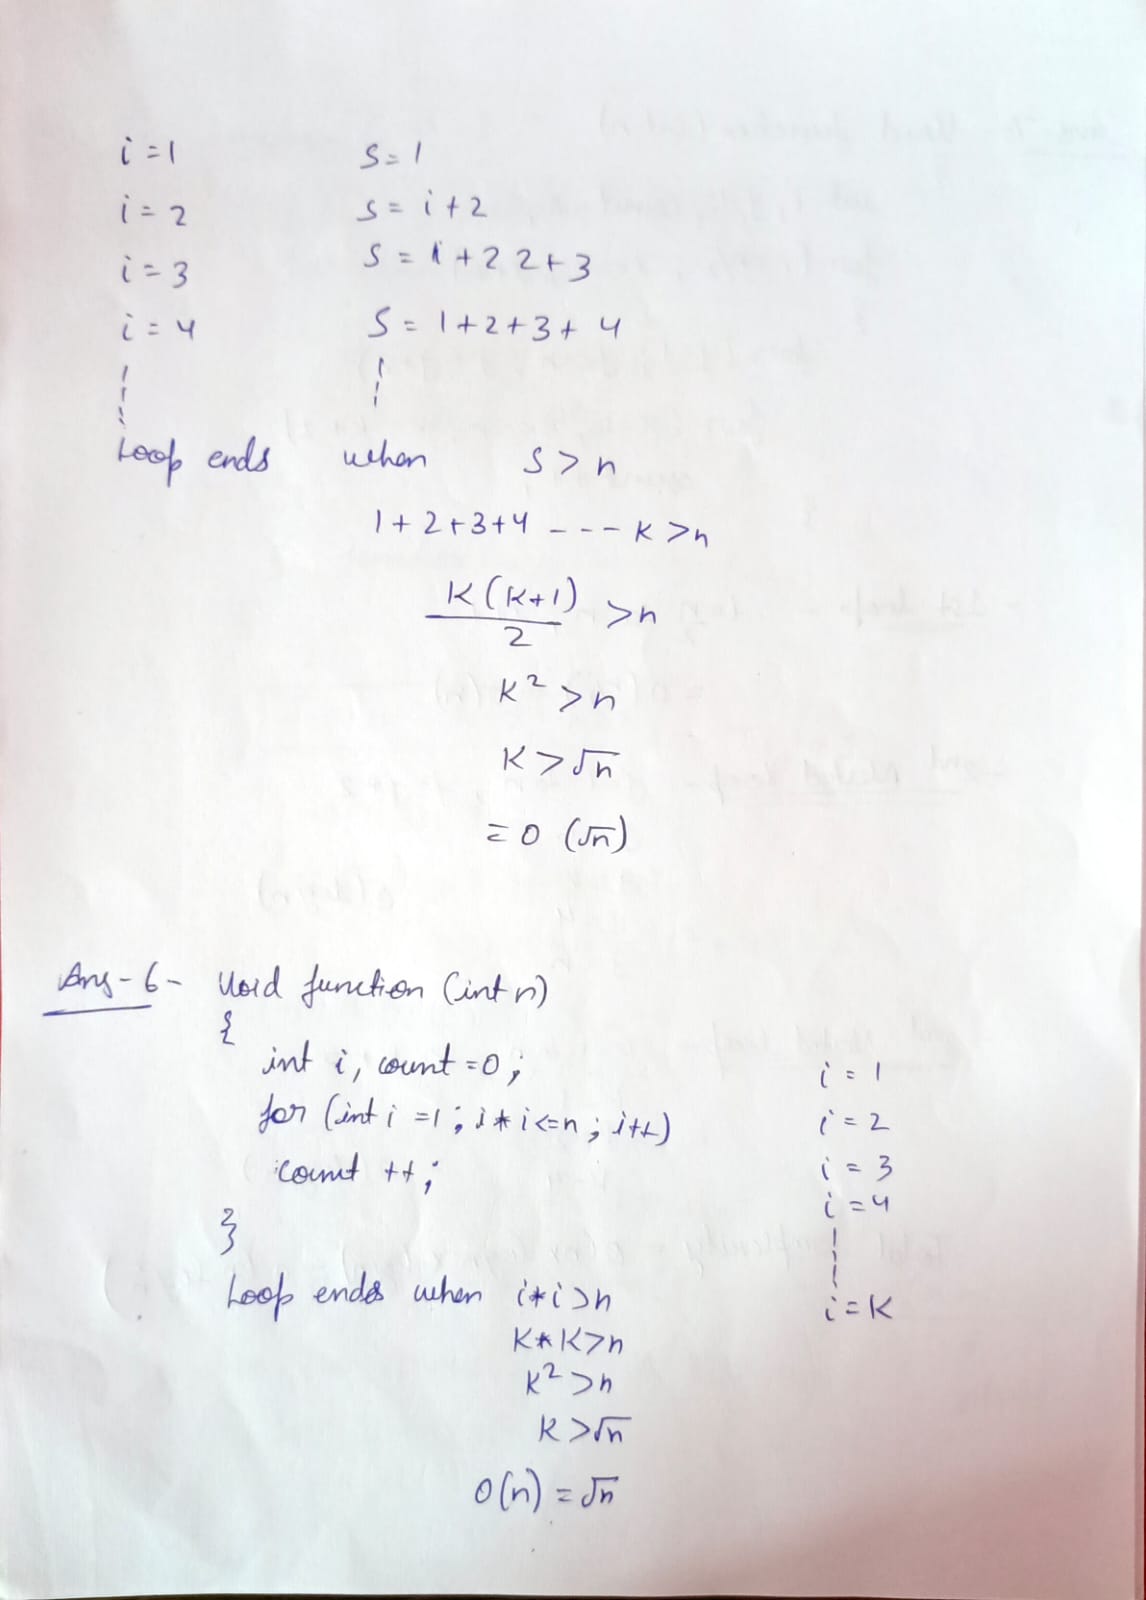 i=1 S=1
i=2 S=i+2
i=3 S=1+2 2+3
i=4 S=1+2+3+4
Loop ends when S>n
1+2+3+4 --- K>n
K(K+1)/2 >n
K²>n
K>√n
=O(√n)
Ans-6- Void function (int n)
{
int i, count=0;
for (int i=1; i*i<=n; i++)
count ++;
}
i=1
i=2
i=3
i=4
i=K
Loop ends when i*i>n
K*K>n
K²>n
K>√n
O(n)=√n